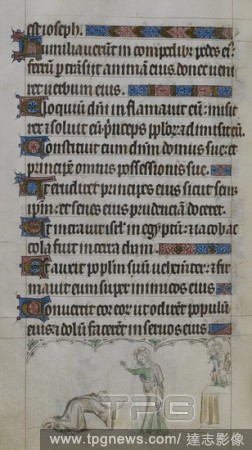 est ioseph.
Humiliauerūt in cōpedib; pedes ei
ferrū ptransiit animam eius donec ueni
ret uerbum eius.
Eloquiū dn̄i inflamauit eū: misit
rex ⁊ soluit eū p̄nceps pplōꝝ ⁊ dimisit eū.
Constituit eum dn̄m domus sue: et
principē omnis possessionis sue.
Ut erudiret principes eius sicut sem
ipm̄: et senes eius prudenciā doceret.
Et intrauit isrl̄ in egyptū: et iacob ac
cola fuit in terra cham.
Et auxit poplm̄ suū uehemēter: ⁊ fir
mauit eum super inimicos eius
Conuertit cor eoꝝ ut odirēt populū
eius: ⁊ dolū facerēt in seruos eius
TPG
www.tpgnews.com / 達志影像